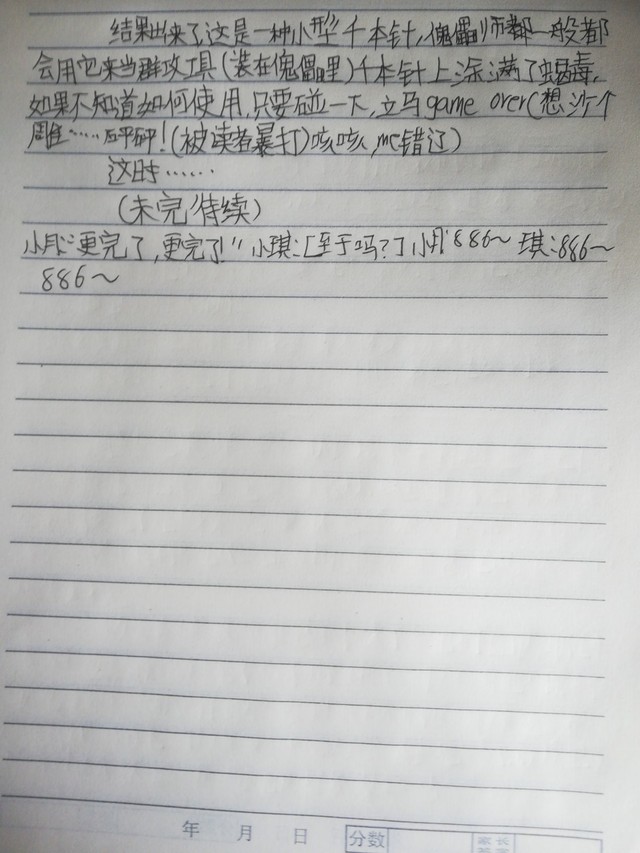 结果出来了这是一种小型千本针,傀儡师都一般都
会用它来当群攻工具(装在傀儡里)千本针上涂满了蝎毒,
如果不知道如何使用,只要碰一下,立马game over(想当个
雕……砰砰!(被读者暴打)咳咳,mc错辽)
这时……
(未完待续)
小月:"更完了,更完了!"小琪:[至于吗?]小月:886~ 琪:886~
886~
年 月 日
分数
家长